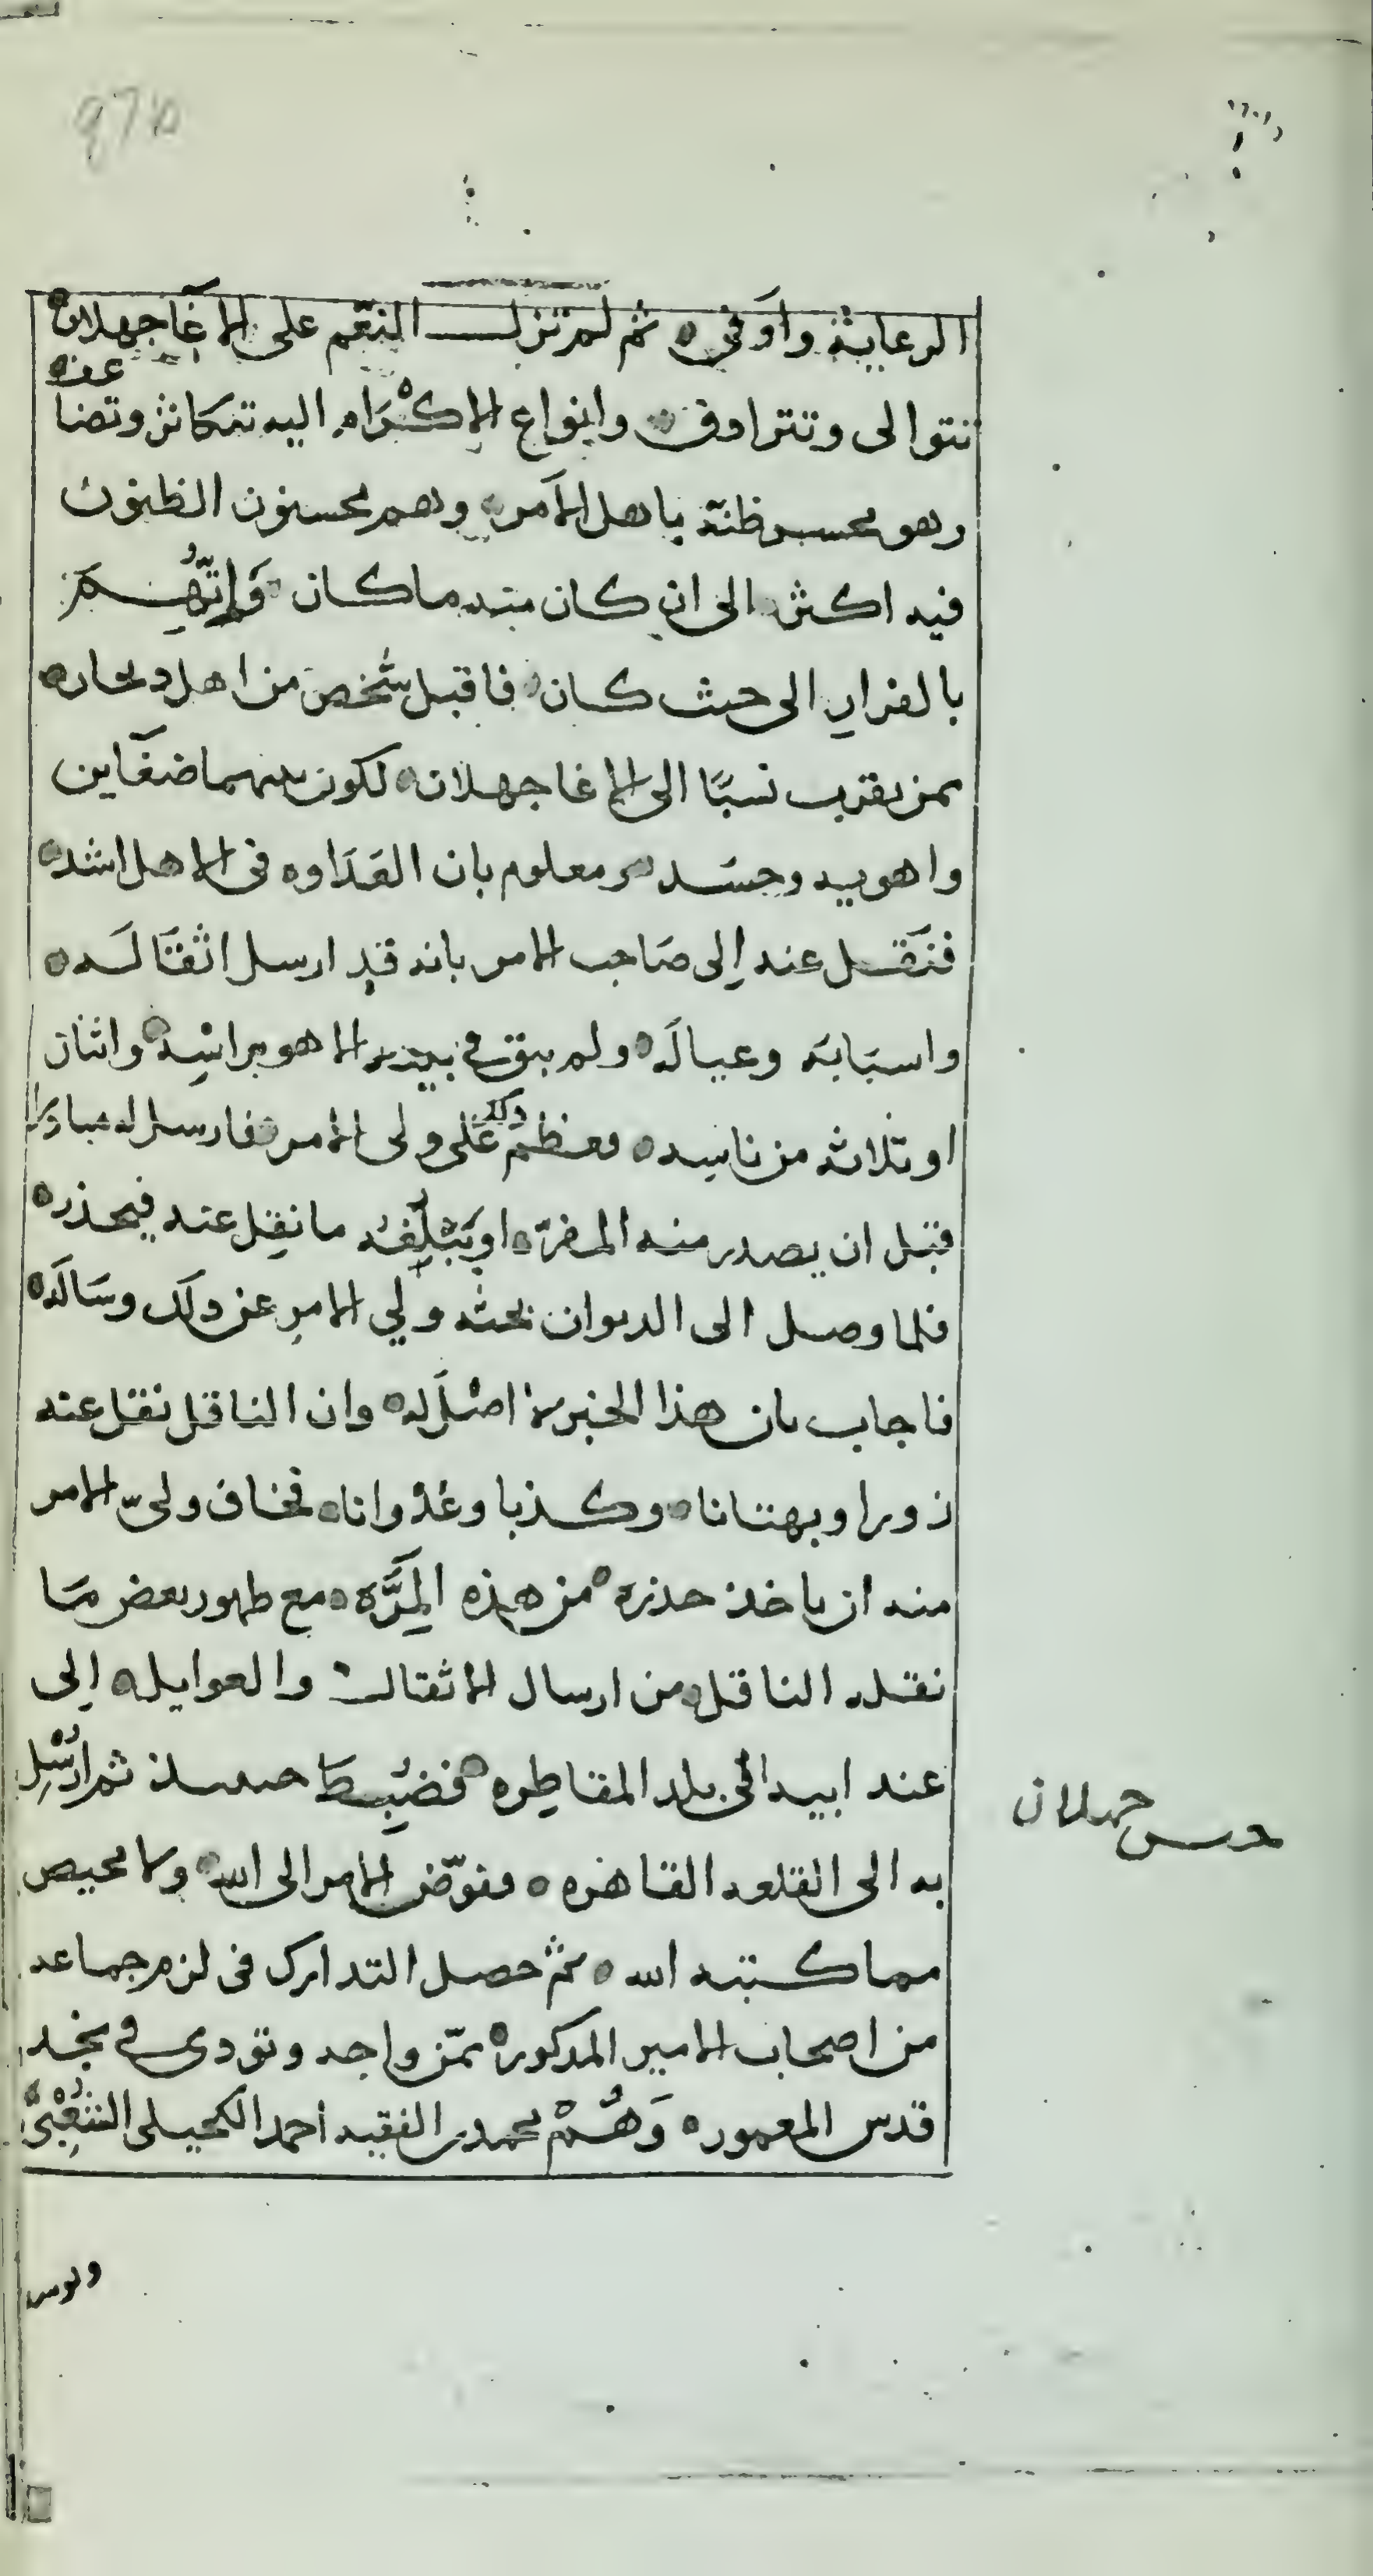 97b
الرعاية واوفى ثم لم تزل النعم على الاغا جهلان
تتوالى وتترادف وانواع الاكرام اليه تتكاثر وتضا
عف
وهو يحسن ظنه باهل الامر وهم يحسنون الظنون
فيه اكثر الى ان كان منه ما كان واتهم
بالفرار الى حيث كان فاقبل شخص من اهل
ممن يقرب نسبًا الى الاغا جهلان لكون بينهما ضغاين
وحسد ومعلوم بان العداوه في الاهل اشد
فنقل عنه إلى صاحب الامر بانه قد ارسل اثقاله
واسبابه وعياله ولم يبق في بيته الا هو براسه واثنان
او ثلاثه من ناسه فعظم ذلك على ولى الامر فارسل له مبادرا
قبل ان يصدر منه المفر او يبلغه ما نقل عنه فيحذر
فلما وصل الى الديوان بحثه ولي الامر عن ذلك وساله
فاجاب بان هذا الخبر لا اصل له وان الناقل نقل عنه
زورا وبهتانا وكذبا وعدوانا فخاف ولىّ الامر
منه ان ياخذ حذره من هذه المرَّه مع ظهور بعض ما
نقله الناقل من ارسال الاثقال والعوايل إلى
عند ابيه الى بلد المقاطره فضبط حينئذ ثم ارسل
به الى القلعه القاهره ففوّض الامر الى الله ولا محيص
مما كتبه الله ثم حصل التدارك في لزم جماعه
من اصحاب الامير المذكور ممّن واجه ونودى في نجد
قدس المعموره وَهُمْ محمد بن الفقيه احمد الكحيلى الشعبىّ
حبس جهلان